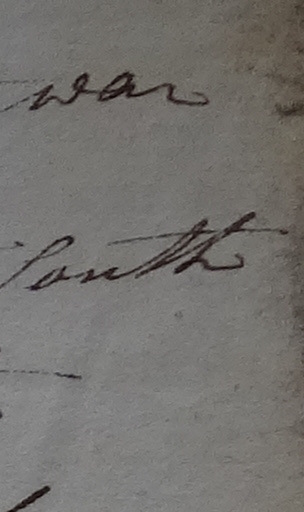 war
South